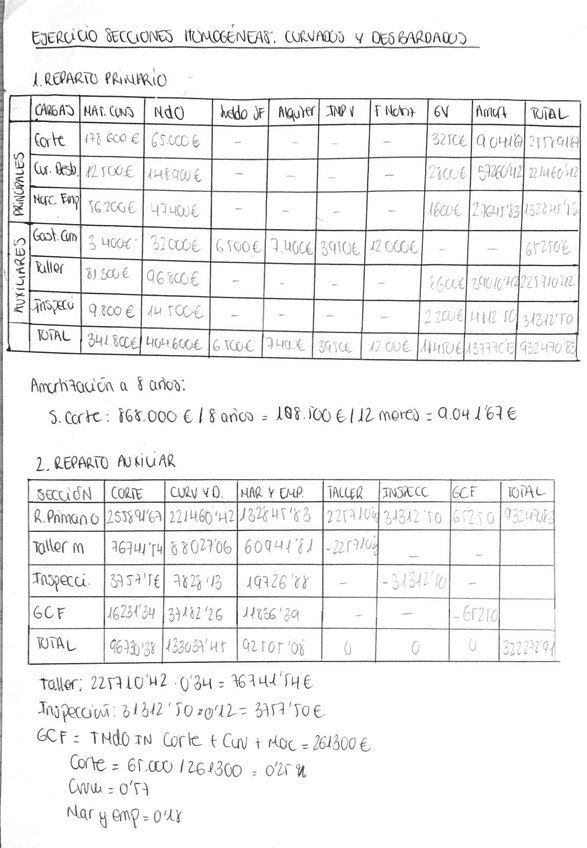 EJERCICIO SECCIONES HOMOGÉNEAS. CURVADOS Y DESBARDADOS
1. REPARTO PRIMARIO
CARGAS MAT. CONS NdO Sueldo JF Alquiler INDV F. Notri GV Amort TOTAL
PRINCIPALES
Corte 178 600 € 65.000€ - - - - 3250€ 9.041'67
Cur. Desb. 12 500€ 148.900€ - - - - 2800€ 57260'42 221460'42
Marc. Emp 56200€ 47400€ - - - - 1600€ 27645'83 132845'83
AUXILIARES
Gast. Com 3 400€ 32000€ 6500€ 7.400€ 3950€ 12000€ - - 65250€
Taller 81.300€ 96800€ - - - - 8600€ 39010'42 225710'42
Inspecci 9.800€ 14.500€ - - - - 2200€ 4812'50 31312'50
TOTAL 341.800€ 404600€ 6.500€ 7400€ 3950€ 12000€ 18450€ 932470'83
Amortización a 8 años:
S. Corte: 868.000 € / 8 años = 108.500€ / 12 meses = 9.041'67€
2. REPARTO AUXILIAR
SECCIÓN CORTE CURV Y D. MAR Y EMP. TALLER INSPECC GCF TOTAL
R. Primario 255891'67 221460'42 132845'83 225710'42 31312'50 65250 932470'83
Taller m 76741'54 88027'06 60941'81 -225710'42 - -
Inspecci. 3757'5€ 7828'13 19726'88 - -31312'50 -
GCF 16231'34 37182'26 11836'39 - - -65250
TOTAL 96730'38 133037'45 92505'08 0 0 0 322272'91
Taller: 225710'42 · 0'34 = 76741'54€
Inspeccion: 31312'50 · 0'12 = 3757'50€
GCF = TMdO IN Corte + Cuv + Mac = 261300€
Corte = 65.000 / 261300 = 0'25
Curv = 0'57
Mar y emp = 0'18